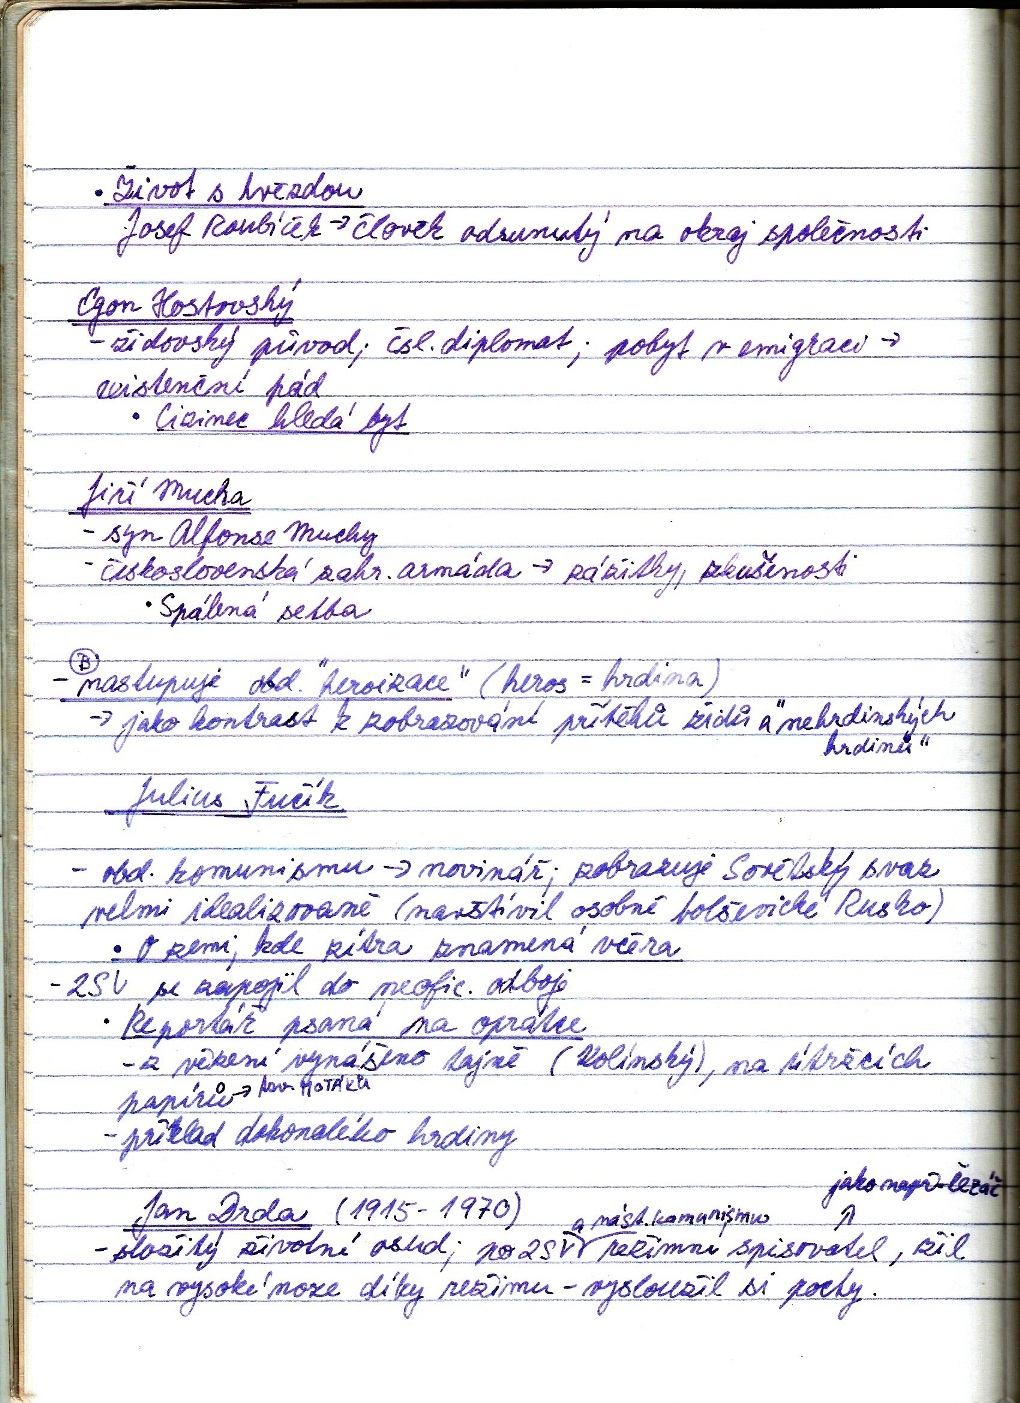 • Život s hvězdou
Josef Roubíček → člověk odsunutý na okraj společnosti
Egon Hostovský
- židovský původ; čsl. diplomat; pobyt v emigraci →
existenční pád
• Cizinec hledá byt
Jiří Mucha
- syn Alfonse Muchy
- československá zahr. armáda → zážitky, zkušenosti
• Spálená setba
B
- nastupuje obd. "heroizace" (heros = hrdina)
→ jako kontrast k zobrazování příběhů židů a "nehrdinských
hrdinů"
Julius Fučík
- obd. komunismu → novinář; zobrazuje Sovětský svaz
velmi idealizovaně (navštívil osobně bolševické Rusko)
• O zemi, kde zítra znamená včera
- 2SV se zapojil do neofic. odboje
• Reportáž psaná na oprátce
- z vězení vynášeno tajně (Kolínský), na útržcích
papírů → tzv. MOTÁKŮ
- příklad dokonalého hrdiny
jako např. Řezáč
Jan Drda (1915-1970)
a nást. komunismu
- složitý životní osud; po 2SV režimní spisovatel, žil
na vysoké noze díky režimu - vysloužil si pochy.